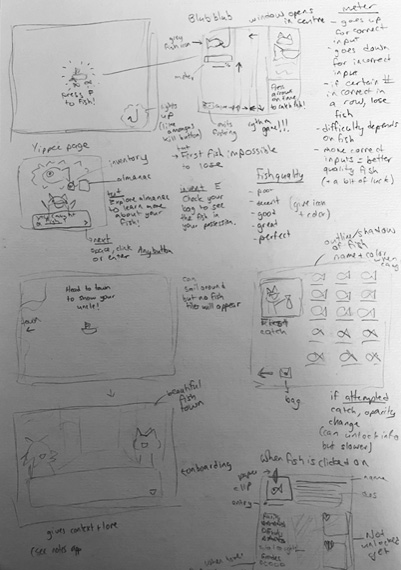 press P
to fish!
lights
up
Blub blub
grey
fish icon
meter
exits
fishing
window opens
in centre
Press
arrow
on time
to catch fish!
rhythm
game!!!
tut
→ First fish impossible
to lose
meter
- goes up
for correct
input
- goes down
for incorrect
input
- if certain #
incorrect in
a row, lose
fish
- difficulty depends
on fish
- more correct
inputs = better
quality fish
(+ a bit of luck)
Yippee page
inventory
almanac
tut
Explore almanac
to learn more
about your
fish!
next
space, click
or enter
Any button
invent E
Check your
bag to see
the fish in
your possession.
Fish quality
- poor
- decent
- good
- great
- perfect
(give icon
+ color)
Head to town
to show your
uncle!
town
can
sail around
but no fish
tiles will appear
outline/shadow
of fish
name + color when
catch
bag
if attempted
catch, opacity
change
(can unlock info
but slower)
beautiful
fish
town
onboarding
gives context + lore
(see notes app
When fish is clicked on
paper
clip
name
Not
unlocked
yet